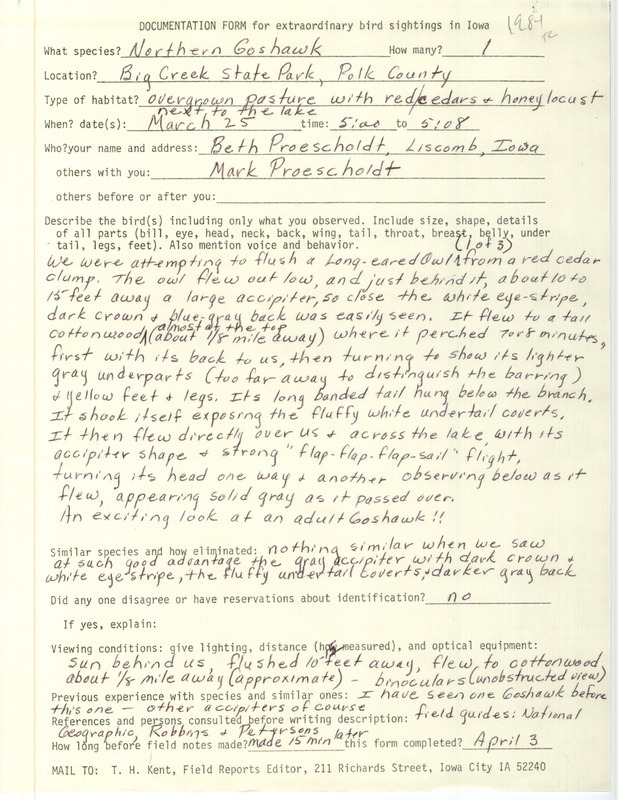 DOCUMENTATION FORM for extraordinary bird sightings in Iowa 1984
What species? Northern Goshawk How many? 1
Location? Big Creek State Park, Polk County
Type of habitat? overgrown pasture with red cedars + honey locust
next to the lake
When? date(s): March 25 time: 5:00 to 5:08
Who? your name and address: Beth Proescholdt, Liscomb, Iowa
others with you: Mark Proescholdt
others before or after you:
Describe the bird(s) including only what you observed. Include size, shape, details
of all parts (bill, eye, head, neck, back, wing, tail, throat, breast, belly, under
tail, legs, feet). Also mention voice and behavior. (1 of 3)
We were attempting to flush a Long-eared Owl from a red cedar
clump. The owl flew out low, and just behind it, about 10 to
15 feet away a large accipiter, so close the white eye-stripe,
dark crown + blue-gray back was easily seen. It flew to a tall
almost at the top
cottonwood (about 1/8 mile away) where it perched 7 or 8 minutes,
first with its back to us, then turning to show its lighter
gray underparts (too far away to distinguish the barring)
+ yellow feet + legs. Its long banded tail hung below the branch.
It shook itself exposing the fluffy white undertail coverts.
It then flew directly over us + across the lake, with its
accipiter shape + strong "flap-flap-flap-sail" flight,
turning its head one way + another observing below as it
flew, appearing solid gray as it passed over.
An exciting look at an adult Goshawk!!
Similar species and how eliminated: nothing similar when we saw
at such good advantage the gray accipiter with dark crown +
white eye stripe, the fluffy undertail coverts, + darker gray back
Did any one disagree or have reservations about identification? no
If yes, explain:
Viewing conditions: give lighting, distance (how measured), and optical equipment:
Sun behind us, flushed 10 feet away, flew to cottonwood,
about 1/8 mile away (approximate) - binoculars (unobstructed view)
Previous experience with species and similar ones: I have seen one Goshawk before
this one — other accipiters of course
References and persons consulted before writing description: field guides: National
Geographic, Robbins + Petersons
How long before field notes made? made 15 min later this form completed? April 3
MAIL TO: T. H. Kent, Field Reports Editor, 211 Richards Street, Iowa City IA 52240